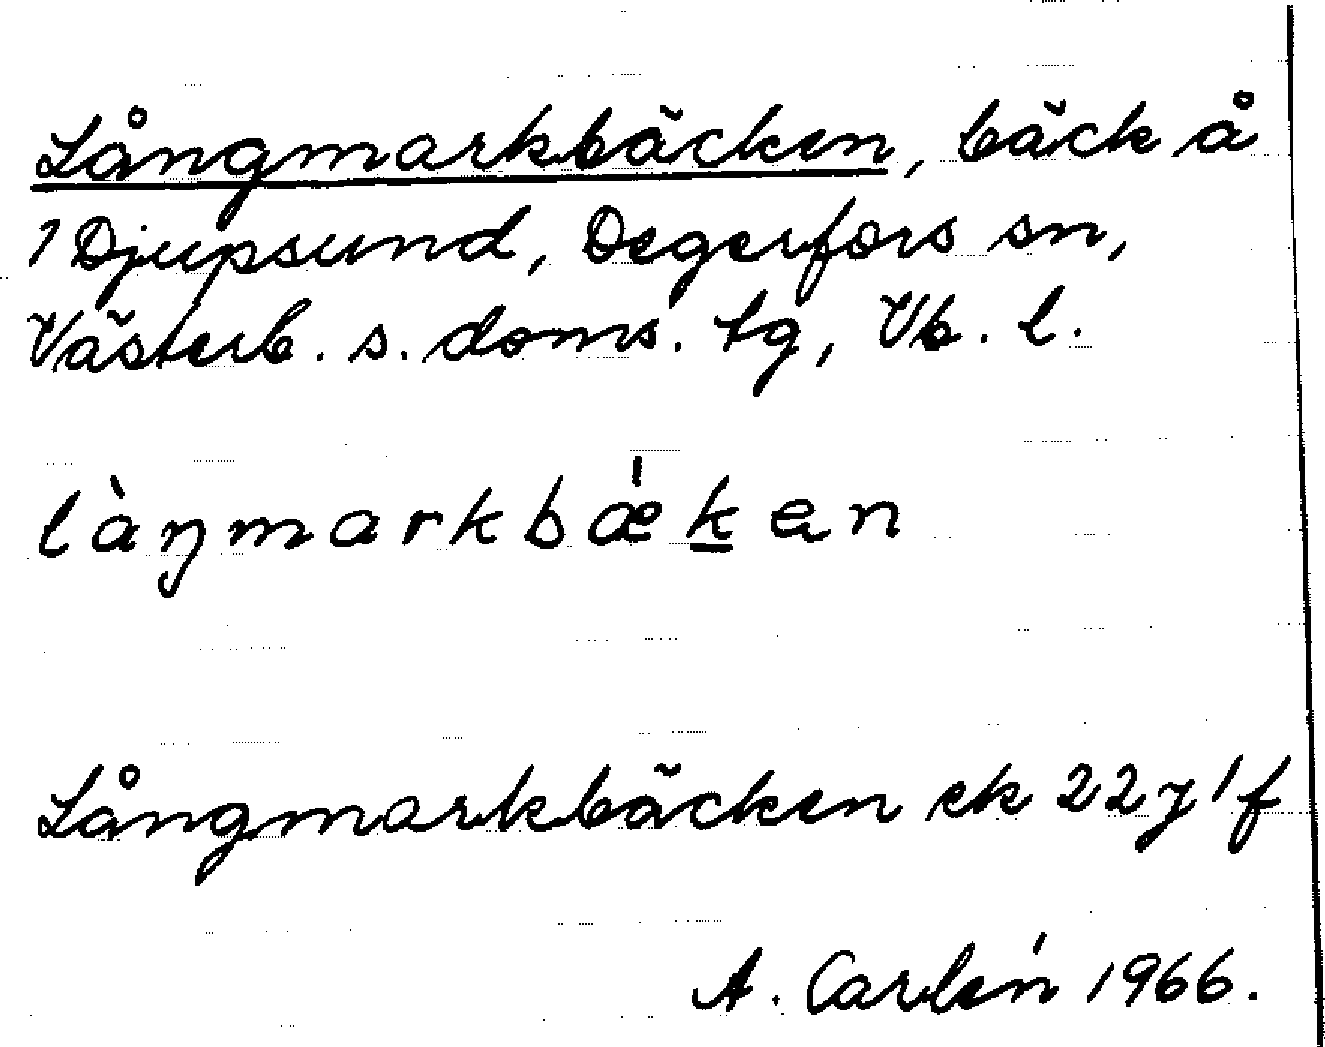 Långmarkbäcken, bäck å
1 Djupsund, Degerfors sn,
Västerb. s. doms. tg, Vb. l.
làŋmarkbǽk̲ən
Långmarkbäcken ek 22 y 1 f
A. Carlén 1966.